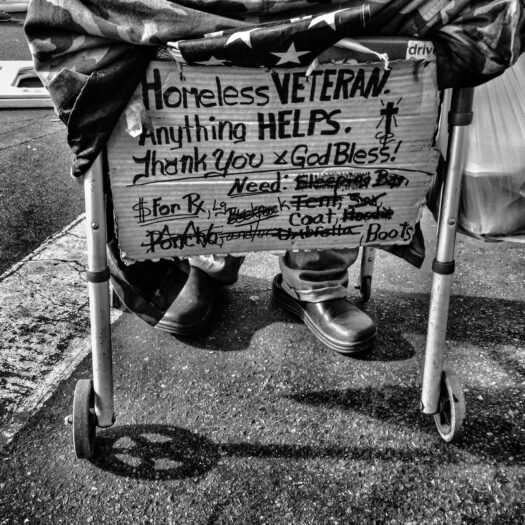 drive
Homeless VETERAN.
Anything HELPS.
Thank You & God Bless!
Need: Sleeping Bag,
$ For Rx, Lg Backpack, Tent, Sox,
Coat, Hoodie
Poncho, and/or Umbrella, Boots